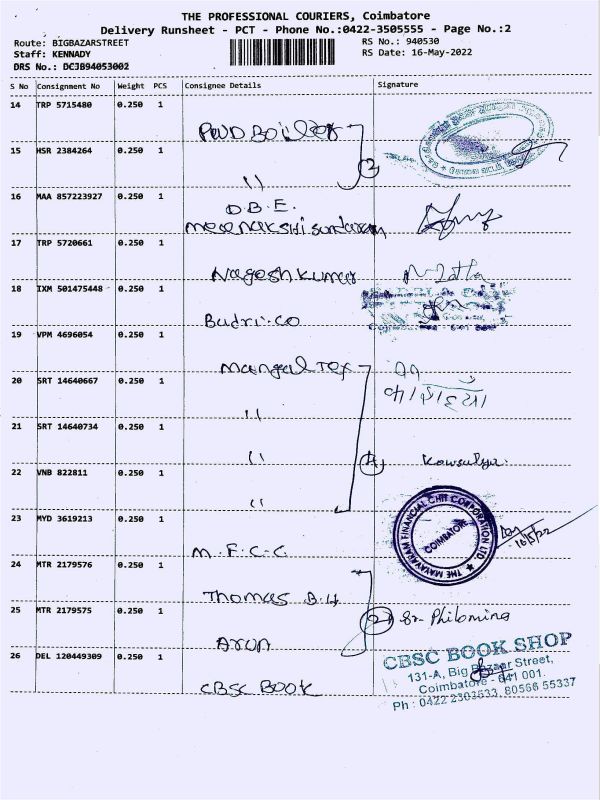 THE PROFESSIONAL COURIERS, Coimbatore
Delivery Runsheet - PCT - Phone No.:0422-3505555 - Page No.:2
Route: BIGBAZARSTREET
RS No.: 940530
Staff: KENNADY
RS Date: 16-May-2022
DRS No.: DCJB94053002
S No Consignment No Weight PCS Consignee Details Signature
14 TRP 5715480 0.250 1
PWD Boiler
15 HSR 2384264 0.250 1
2
"
16 MAA 857223927 0.250 1
O.B.E.
meenakshi sundaram
17 TRP 5720661 0.250 1
Nagesh Kumar
N. Latha
18 IXM 501475448 0.250 1
Budri.co
19 VPM 4696054 0.250 1
Mangal Tex
20 SRT 14640667 0.250 1
"
21 SRT 14640734 0.250 1
"
4 Kowsalya.
22 VNB 822811 0.250 1
"
23 MYD 3619213 0.250 1
THE MAYAVARAM FINANCIAL CHIT CORPORATION LTD.
COIMBATORE
16/5/22
M.F.C.C.
24 MTR 2179576 0.250 1
Thomas B.H
25 MTR 2179575 0.250 1
2 Sr. Philomina
Arun
26 DEL 120449309 0.250 1
CBSC BOOK
CBSC BOOK SHOP
131-A, Big Bazaar Street,
Coimbatore - 641 001.
Ph : 0422 2303633, 80566 55337